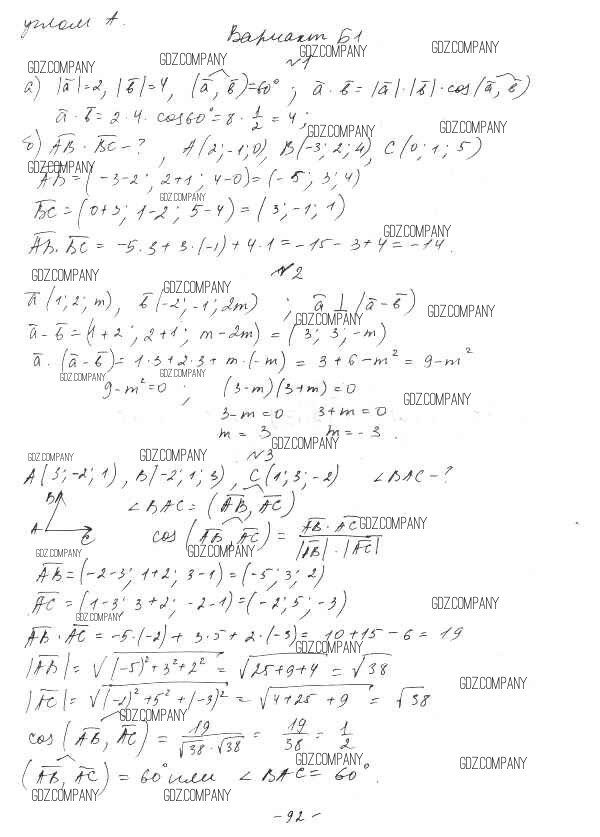 углом A.
Вариант Б1
GDZ.COMPANY GDZ.COMPANY GDZ.COMPANY GDZ.COMPANY
№1
а) |a̅|=2, |b̅|=4, (a̅, b̅)=60° ; a̅ · b̅ = |a̅|·|b̅|·cos(a̅, b̅)
a̅ · b̅ = 2·4·cos60° = 8·1/2 = 4;
GDZ.COMPANY GDZ.COMPANY
б) AB · BC - ? , A(2;-1;0), B(-3; 2; 4), C(0; 1; 5)
GDZ.COMPANY
AB = (-3-2; 2+1; 4-0) = (-5; 3; 4)
GDZ.COMPANY
BC = (0+3; 1-2; 5-4) = (3; -1; 1)
GDZ.COMPANY
AB · BC = -5·3 + 3·(-1) + 4·1 = -15 - 3 + 4 = -14.
№2
GDZ.COMPANY GDZ.COMPANY
a̅ (1; 2; m), b̅(-2; -1; 2m) ; a̅ ⊥ (a̅ - b̅)
GDZ.COMPANY GDZ.COMPANY
a̅ - b̅ = (1+2; 2+1; m-2m) = (3; 3; -m)
a̅ · (a̅ - b̅) = 1·3 + 2·3 + m·(-m) = 3 + 6 - m² = 9 - m²
GDZ.COMPANY GDZ.COMPANY
9 - m² = 0 ; (3-m)(3+m) = 0
GDZ.COMPANY
3 - m = 0 3 + m = 0
m = 3 m = -3.
GDZ.COMPANY
№3
GDZ.COMPANY GDZ.COMPANY
A(3; -2; 1), B(-2; 1; 3), C(1; 3; -2) ∠BAC - ?
B A C
∠BAC = (AB, AC)
cos(AB, AC) = AB · AC / |AB| · |AC|
GDZ.COMPANY
GDZ.COMPANY GDZ.COMPANY
AB = (-2-3; 1+2; 3-1) = (-5; 3; 2)
AC = (1-3; 3+2; -2-1) = (-2; 5; -3)
GDZ.COMPANY GDZ.COMPANY
AB · AC = -5·(-2) + 3·5 + 2·(-3) = 10 + 15 - 6 = 19
GDZ.COMPANY
|AB| = √((-5)² + 3² + 2²) = √(25+9+4) = √38
GDZ.COMPANY
|AC| = √((-2)² + 5² + (-3)²) = √(4+25+9) = √38
GDZ.COMPANY
cos(AB, AC) = 19/(√38·√38) = 19/38 = 1/2
GDZ.COMPANY GDZ.COMPANY
(AB, AC) = 60° или ∠BAC = 60°.
GDZ.COMPANY GDZ.COMPANY
- 92 -